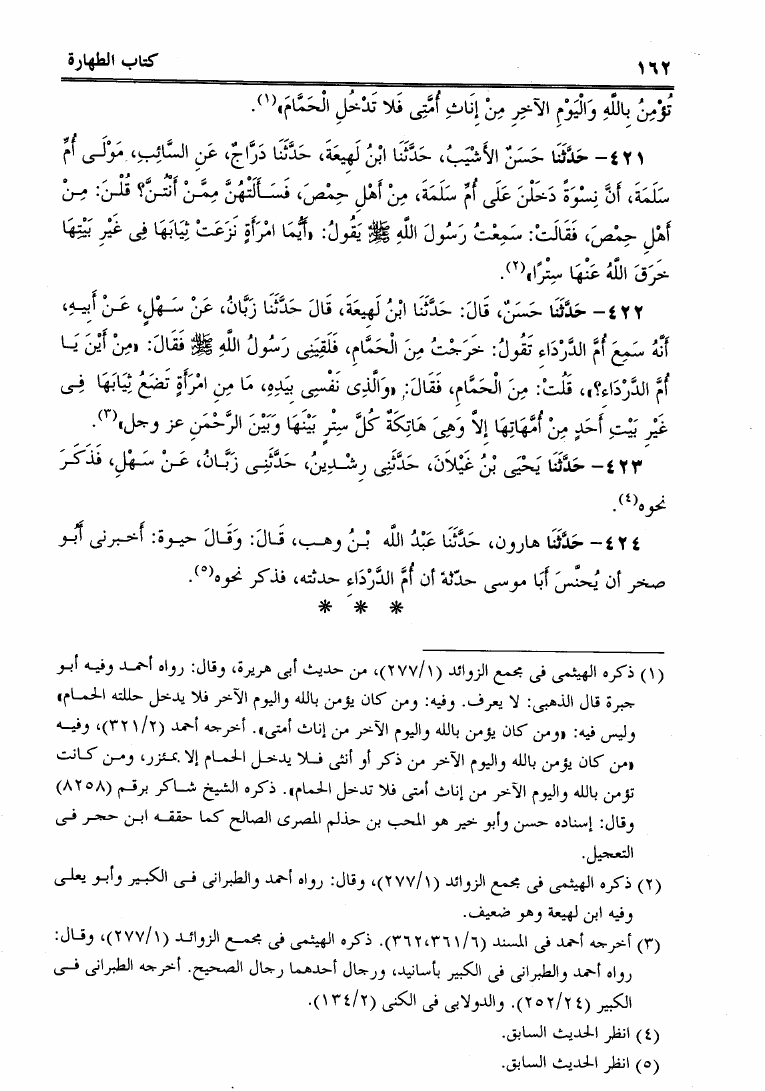 ١٦٢ كتاب الطهارة
تُؤْمِنُ بِاللَّهِ وَالْيَوْمِ الآخِرِ مِنْ إِنَاثِ أُمَّتِى فَلا تَدْخُلِ الْحَمَّامَ»(١).
٤٢١- حَدَّثَنَا حَسَنٌ الأَشْيَبُ، حَدَّثَنَا ابْنُ لَهِيعَةَ، حَدَّثَنَا دَرَّاجٌ، عَنِ السَّائِبِ، مَوْلَى أُمِّ
سَلَمَةَ، أَنَّ نِسْوَةً دَخَلْنَ عَلَى أُمِّ سَلَمَةَ، مِنْ أَهْلِ حِمْصَ، فَسَأَلَتْهُنَّ مِمَّنْ أَنْتُنَّ؟ قُلْنَ: مِنْ
أَهْلِ حِمْصَ، فَقَالَتْ: سَمِعْتُ رَسُولَ اللَّهِ ﷺ يَقُولُ: «أَيُّمَا امْرَأَةٍ نَزَعَتْ ثِيَابَهَا فِى غَيْرِ بَيْتِهَا
خَرَقَ اللَّهُ عَنْهَا سِتْرًا»(٢).
٤٢٢- حَدَّثَنَا حَسَنٌ، قَالَ: حَدَّثَنَا ابْنُ لَهِيعَةَ، قَالَ حَدَّثَنَا زَبَّانُ، عَنْ سَهْلٍ، عَنْ أَبِيهِ،
أَنَّهُ سَمِعَ أُمَّ الدَّرْدَاءِ تَقُولُ: خَرَجْتُ مِنَ الْحَمَّامِ، فَلَقِيَنِى رَسُولُ اللَّهِ ﷺ فَقَالَ: «مِنْ أَيْنَ يَا
أُمَّ الدَّرْدَاءِ؟»، قُلْتُ: مِنَ الْحَمَّامِ، فَقَالَ: «وَالَّذِى نَفْسِى بِيَدِهِ، مَا مِنِ امْرَأَةٍ تَضَعُ ثِيَابَهَا فِى
غَيْرِ بَيْتِ أَحَدٍ مِنْ أُمَّهَاتِهَا إِلاَّ وَهِىَ هَاتِكَةٌ كُلَّ سِتْرٍ بَيْنَهَا وَبَيْنَ الرَّحْمَنِ عز وجل»(٣).
٤٢٣- حَدَّثَنَا يَحْيَى بْنُ غَيْلاَنَ، حَدَّثَنِى رِشْدِينُ، حَدَّثَنِى زَبَّانُ، عَنْ سَهْلٍ، فَذَكَرَ
نحوه(٤).
٤٢٤- حَدَّثَنَا هارون، حَدَّثَنَا عَبْدُ اللَّه بْنُ وهب، قَالَ: وَقَالَ حيوة: أخبرنى أَبُو
صخر أن يُحنَّسَ أَبَا موسى حدّثهُ أن أُمَّ الدَّرْدَاءِ حدثته، فذكر نحوه(٥).
* * *
(١) ذكره الهيثمى فى مجمع الزوائد (٢٧٧/١)، من حديث أبى هريرة، وقال: رواه أحمد وفيه أبو
جبرة قال الذهبى: لا يعرف. وفيه: ومن كان يؤمن بالله واليوم الآخر فلا يدخل حللته الحمام»
وليس فيه: «ومن كان يؤمن بالله واليوم الآخر من إناث أمتى». أخرجه أحمد (٣٢١/٢)، وفيه
«من كان يؤمن بالله واليوم الآخر من ذكر أو أنثى فلا يدخل الحمام إلا بمئزر، ومن كانت
تؤمن بالله واليوم الآخر من إناث أمتى فلا تدخل الحمام». ذكره الشيخ شاكر برقم (٨٢٥٨)
وقال: إسناده حسن وأبو خير هو المحب بن حذلم المصرى الصالح كما حققه ابن حجر فى
التعجيل.
(٢) ذكره الهيثمى فى مجمع الزوائد (٢٧٧/١)، وقال: رواه أحمد والطبرانى فى الكبير وأبو يعلى
وفيه ابن لهيعة وهو ضعيف.
(٣) أخرجه أحمد فى المسند (٣٦١/٦، ٣٦٢). ذكره الهيثمى فى مجمع الزوائد (٢٧٧/١)، وقال:
رواه أحمد والطبرانى فى الكبير بأسانيد، ورجال أحدهما رجال الصحيح. أخرجه الطبرانى فى
الكبير (٢٥٢/٢٤). والدولابى فى الكنى (١٣٤/٢).
(٤) انظر الحديث السابق.
(٥) انظر الحديث السابق.